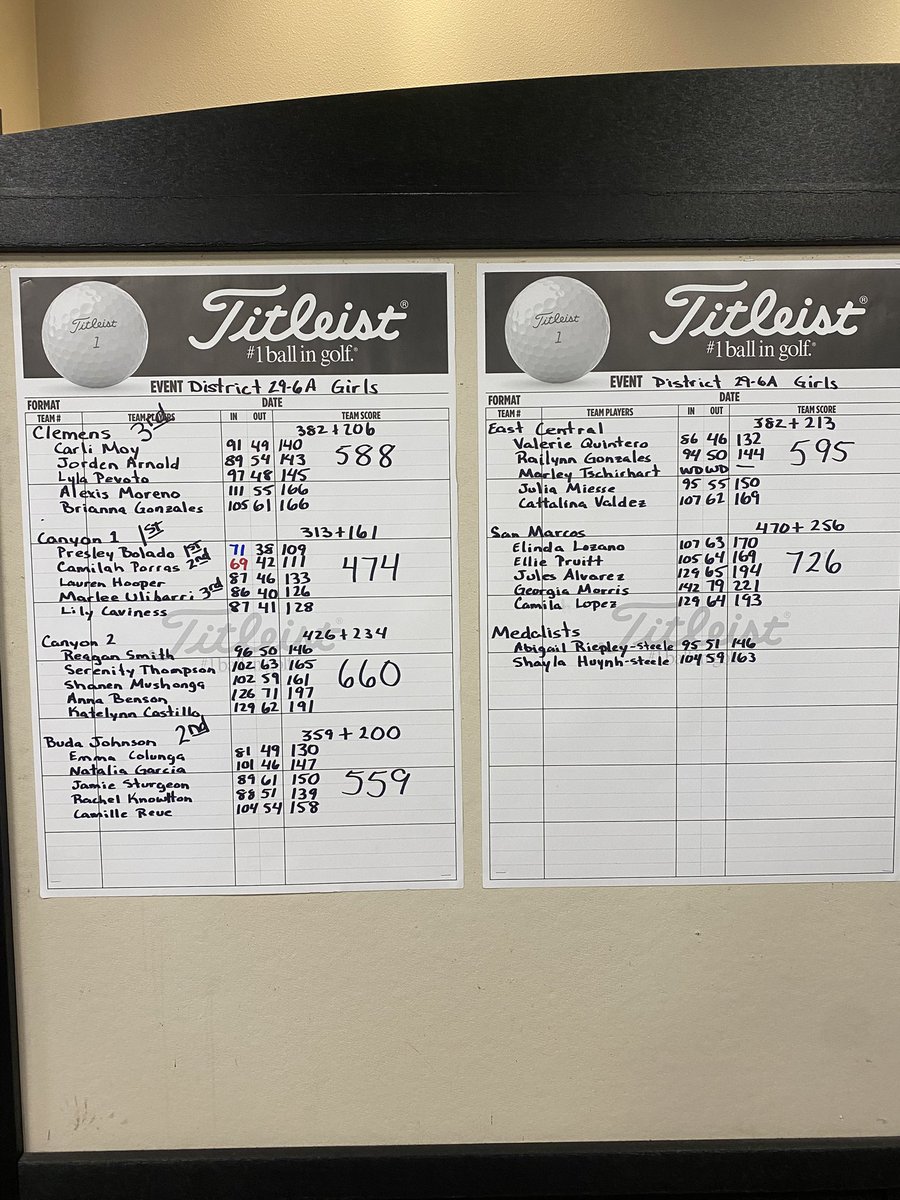 Titleist
1
Titleist®
#1 ball in golf.®
EVENT District 29-6A Girls
FORMAT DATE
TEAM # TEAM PLAYERS IN OUT TEAM SCORE
Clemens 3rd 382+206
Carli Moy 91 49 140 588
Jorden Arnold 89 54 143
Lyla Pevoto 97 48 145
Alexis Moreno 111 55 166
Brianna Gonzales 105 61 166
Canyon 1 1st 313+161
Presley Bolado 1st 71 38 109 474
Camilah Porras 2nd 69 42 111
Lauren Hooper 87 46 133
Marlee Ulibarri 3rd 86 40 126
Lily Caviness 87 41 128
Canyon 2 426+234
Reagan Smith 96 50 146
Serenity Thompson 102 63 165 660
Shanen Mushonga 102 59 161
Anna Benson 126 71 197
Katelynn Castillo 129 62 191
Buda Johnson 2nd 359+200
Emma Colunga 81 49 130
Natalia Garcia 101 46 147
Jamie Sturgeon 89 61 150 559
Rachel Knowlton 88 51 139
Camille Reue 104 54 158
Titleist
Titleist
1
Titleist®
#1 ball in golf.®
EVENT District 29-6A Girls
FORMAT DATE
TEAM # TEAM PLAYERS IN OUT TEAM SCORE
East Central 382+213
Valerie Quintero 86 46 132
Railynn Gonzales 94 50 144 595
Marley Tschirhart WD WD —
Julia Miesse 95 55 150
Cattalina Valdez 107 62 169
San Marcos 470+256
Elinda Lozano 107 63 170
Ellie Pruitt 105 64 169 726
Jules Alvarez 129 65 194
Georgia Morris 142 79 221
Camila Lopez 129 64 193
Medalists
Abigail Riepley-steele 95 51 146
Shayla Huynh-steele 104 59 163
Titleist